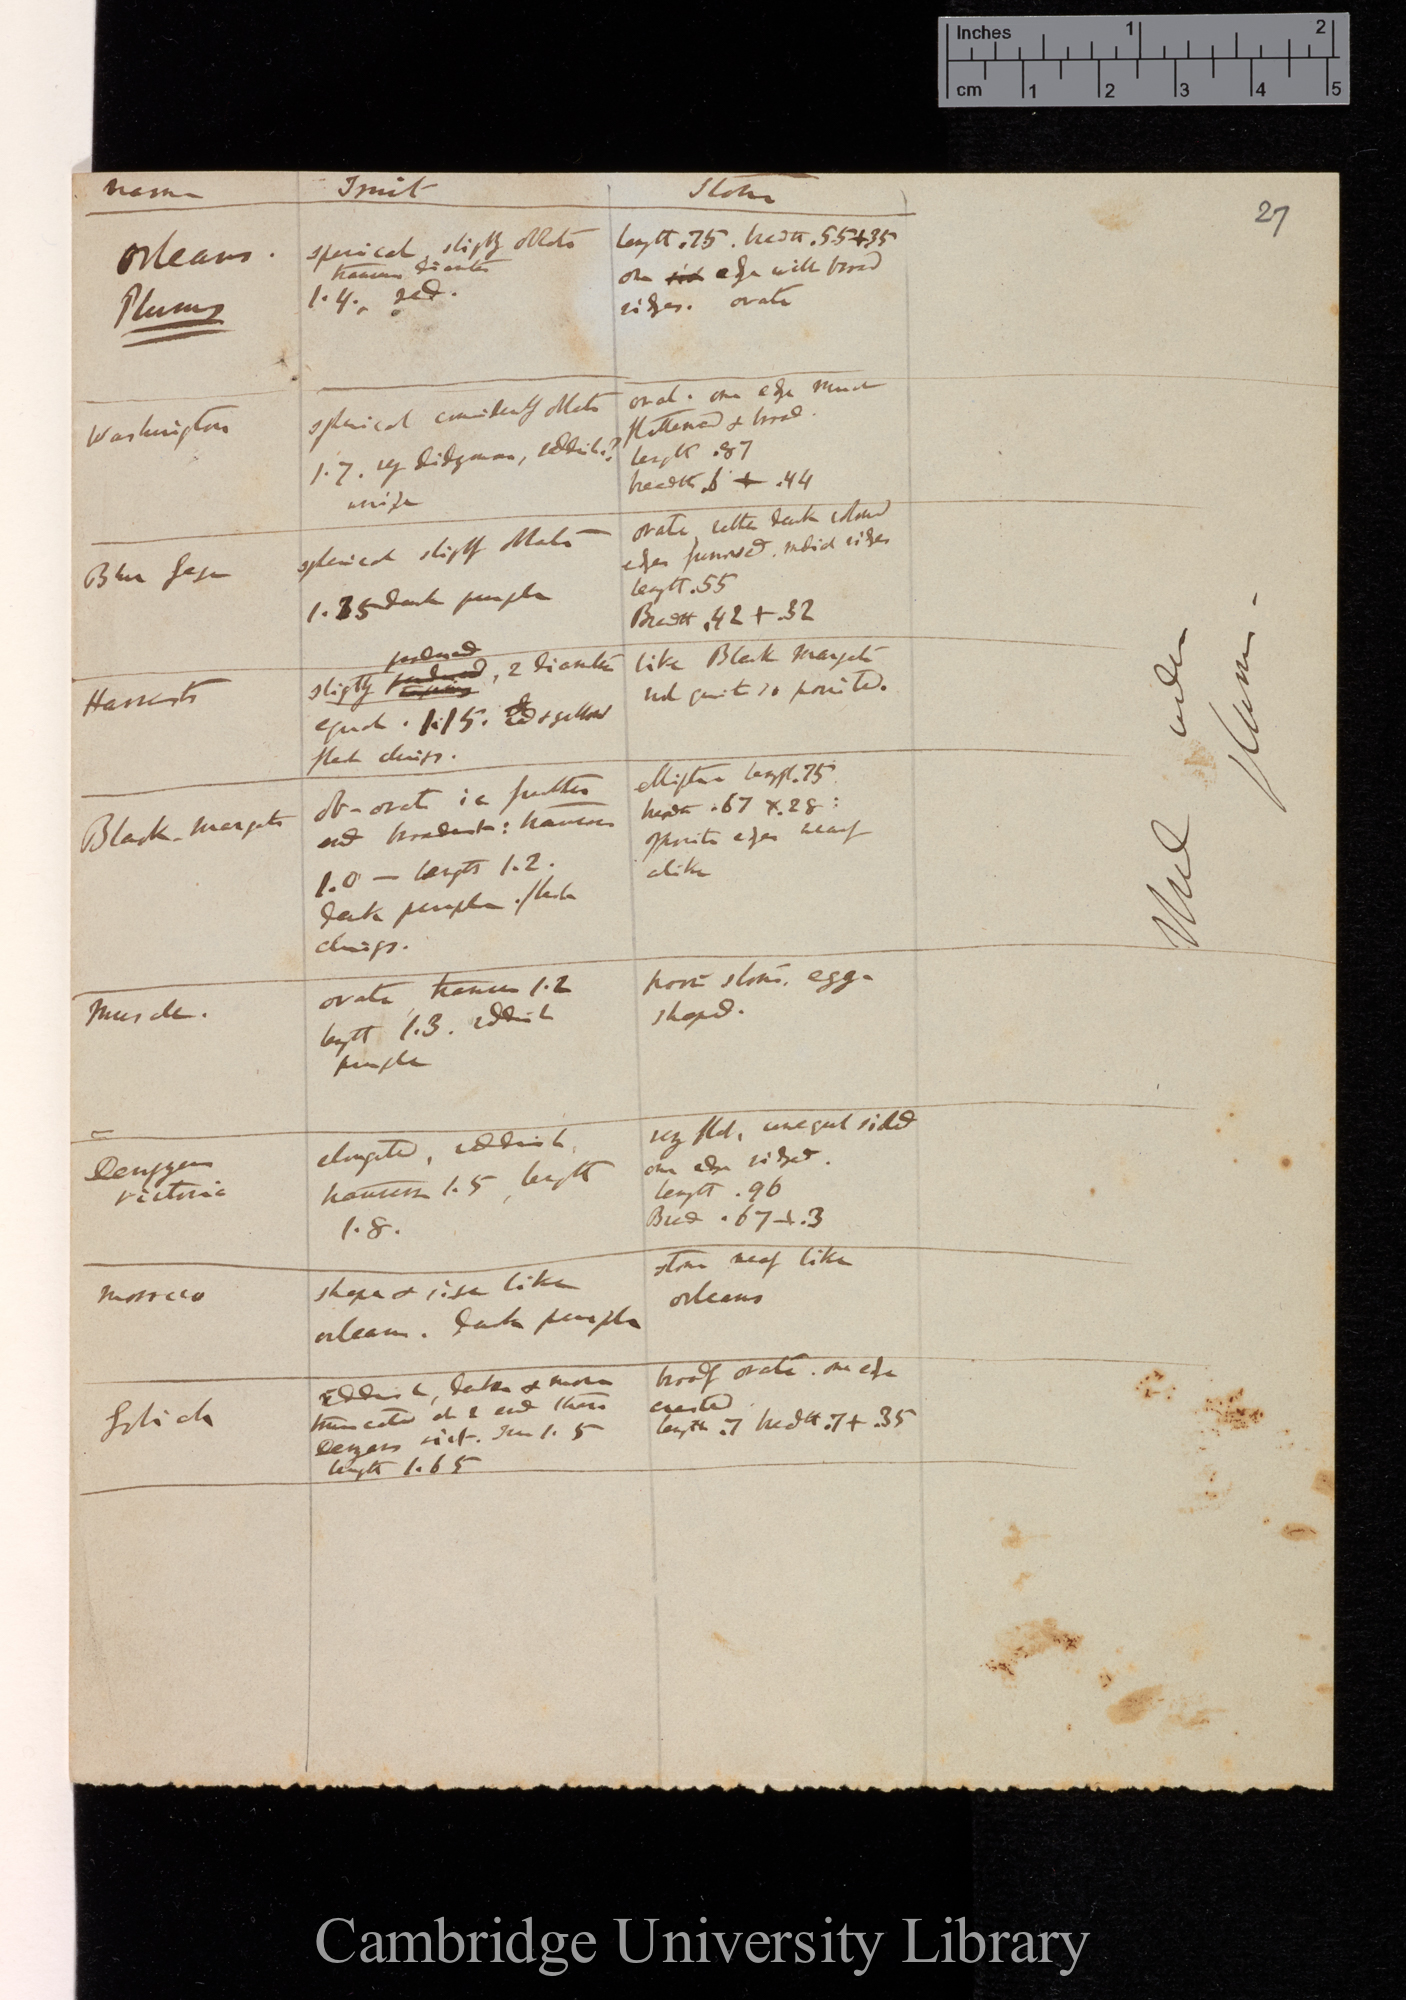 Inches 1 2
cm 1 2 3 4 5
27
name Fruit Stone
Orleans.
Plums
spherical, slightly oblate
transverse diameter
1.4., red.
length .75. breadth .55+35
one side edge with broad
ridges. ovate
Washington
spherical considerably oblate
1.7. reddish?
oval. one edge much
flattened & broad.
length .87
breadth .6 + .44
Blue Gage
spherical slightly oblate
1.35 dark purple
ovate, rather dark coloured
edges furrowed. ridges
length .55
Breadth .42 + .32
Harvests
produced
slightly produced, 2 diameters
equal. 1.15. red & yellow
flesh clings.
like Black Margate
not quite so pointed.
Black-Margate
ob-ovate ie further
end broadest: transverse
1.0 — length 1.2.
dark purple. flesh
clings.
elliptic length .75
breadth .67 × .28:
opposite edges nearly
alike
Muscle.
ovate, transverse 1.2
length 1.3. reddish
purple
stone. egg-
shaped.
Denyers
Victoria
elongated, reddish,
transverse 1.5, length
1.8.
very flat, unequal sided
one edge ridged.
length .96
Bread .67+.3
Morocco
shape & size like
orleans. dark purple
stone nearly like
orleans
Goliath
Reddish, darker & more
truncated at 2 ends than
Denyers vict. Tran 1.5
length 1.65
broadly ovate. one edge
crested
length .7 breadth .7+ .35
Used under
Plum.
Cambridge University Library